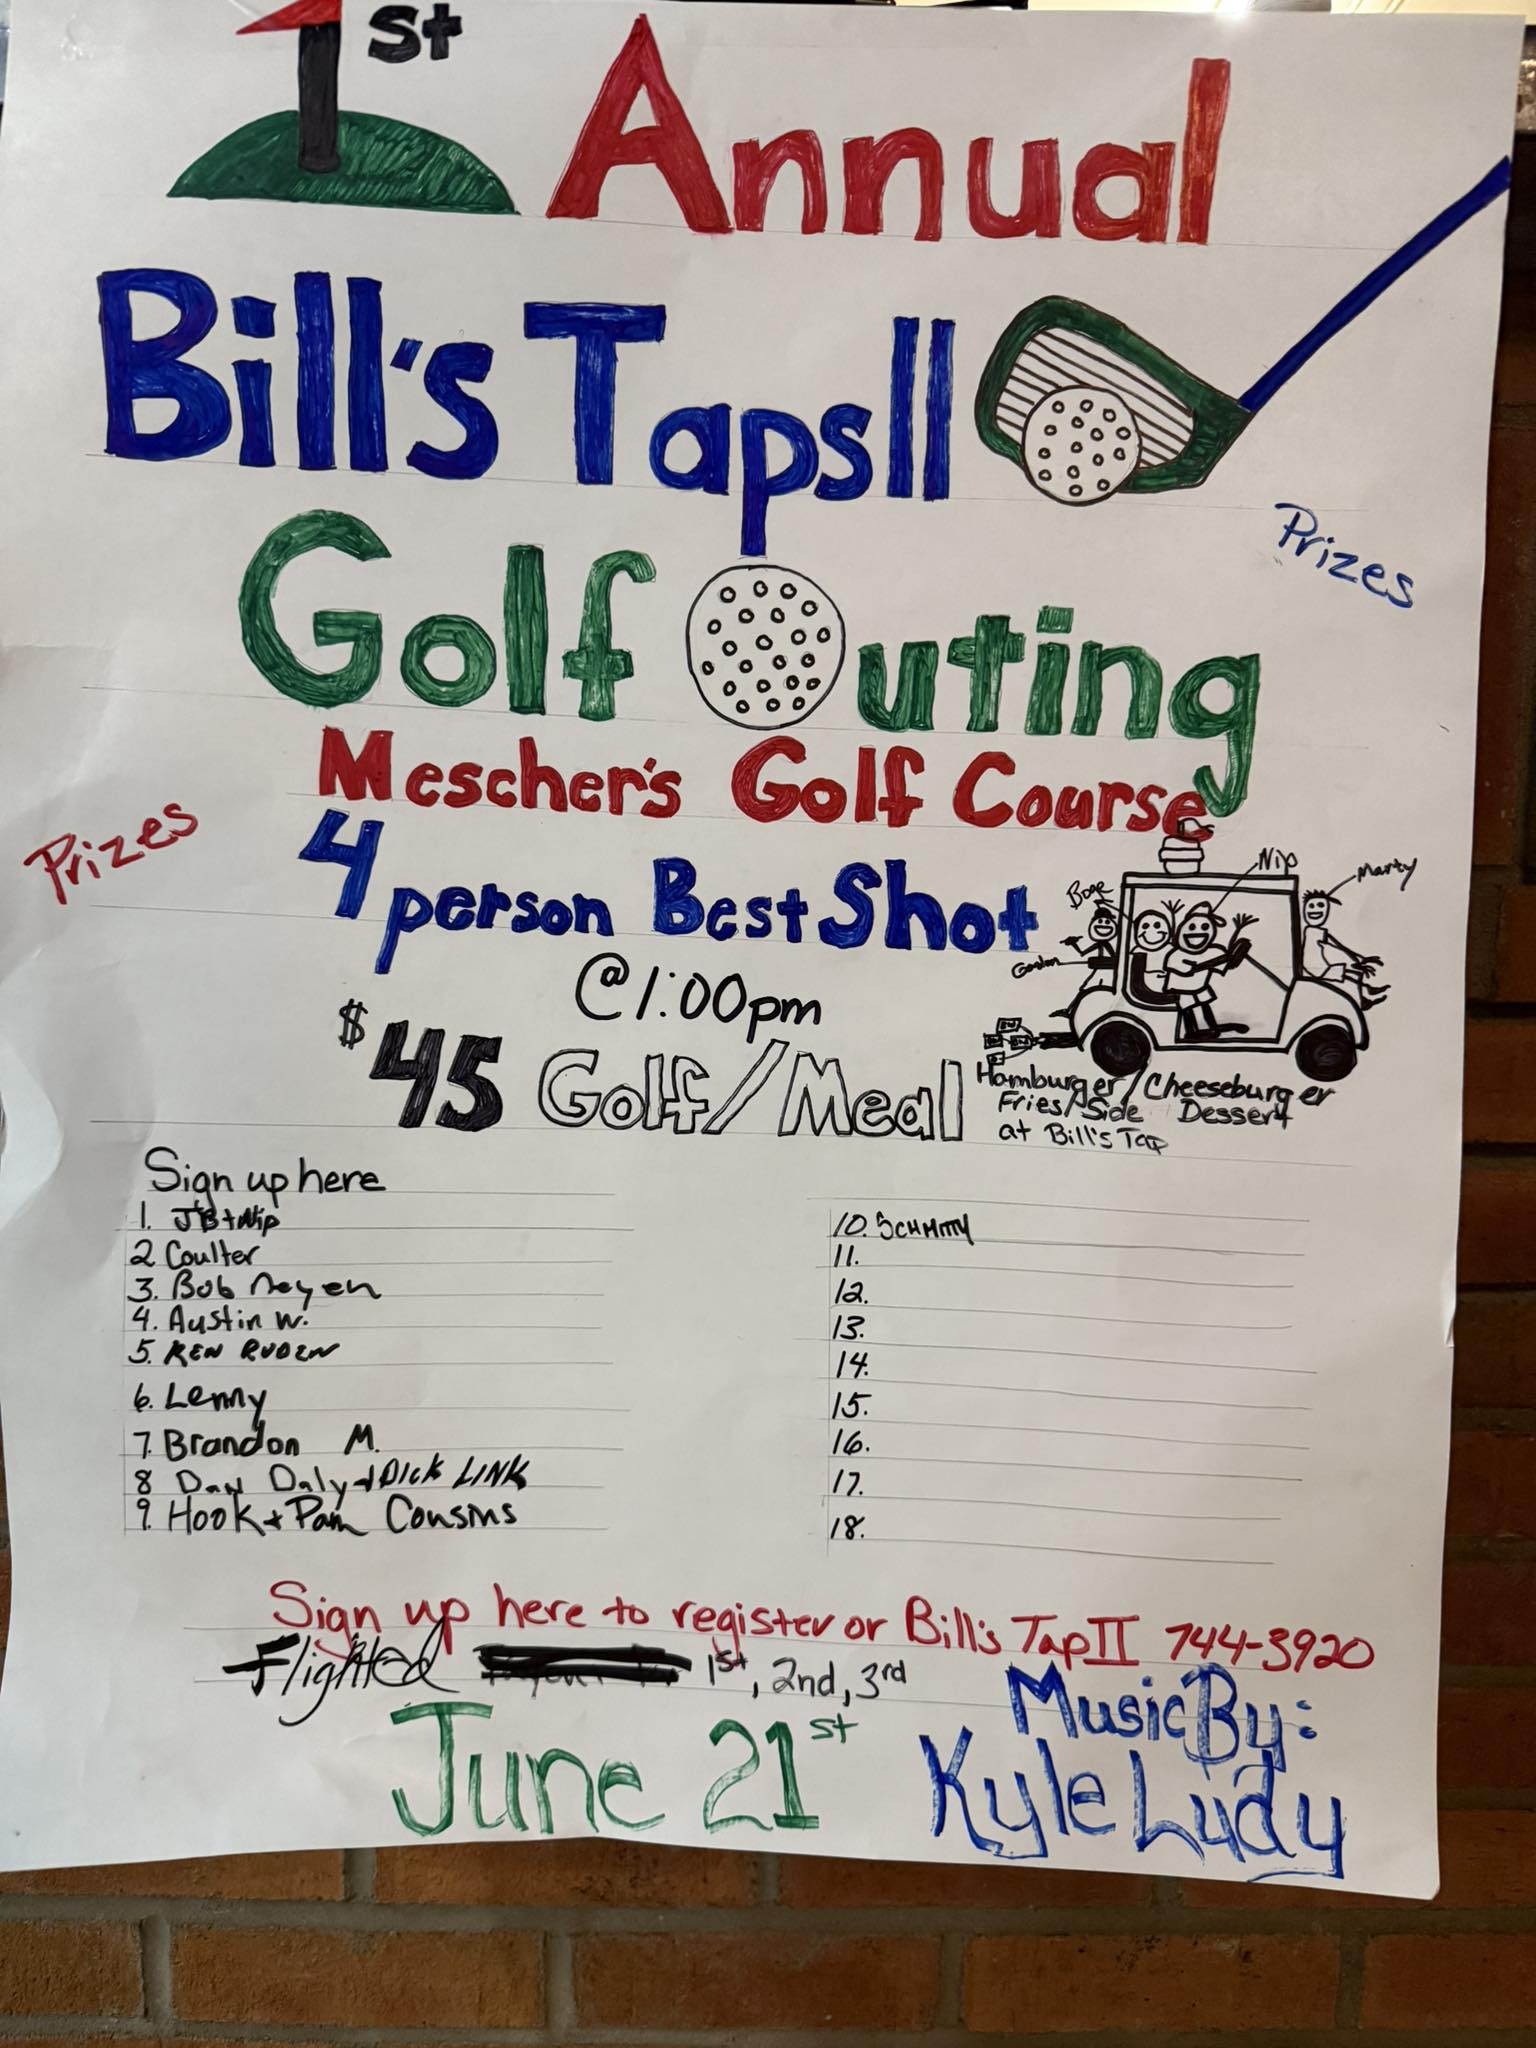 1st Annual
Bill's Taps II
Golf Outing
Prizes
Mescher's Golf Course
Prizes
4 person Best Shot
Boge
Nip
Marty
Gordon
@1:00pm
$45 Golf/Meal
Hamburger/Cheeseburger
Fries/Side Dessert
at Bill's Tap
Sign up here
1. JB + Nip
2 Coulter
3. Bob
4. Austin W.
5. KEN RUDEN
6. Lenny
7. Brandon M.
8 Dan Daly + DICK LINK
9. Hook + Pam Cousins
10. SCHMITTY
11.
12.
13.
14.
15.
16.
17.
18.
Sign up here to register or Bill's Tap II 744-3920
Flighted 1st, 2nd, 3rd
June 21st
Music By:
Kyle Ludy